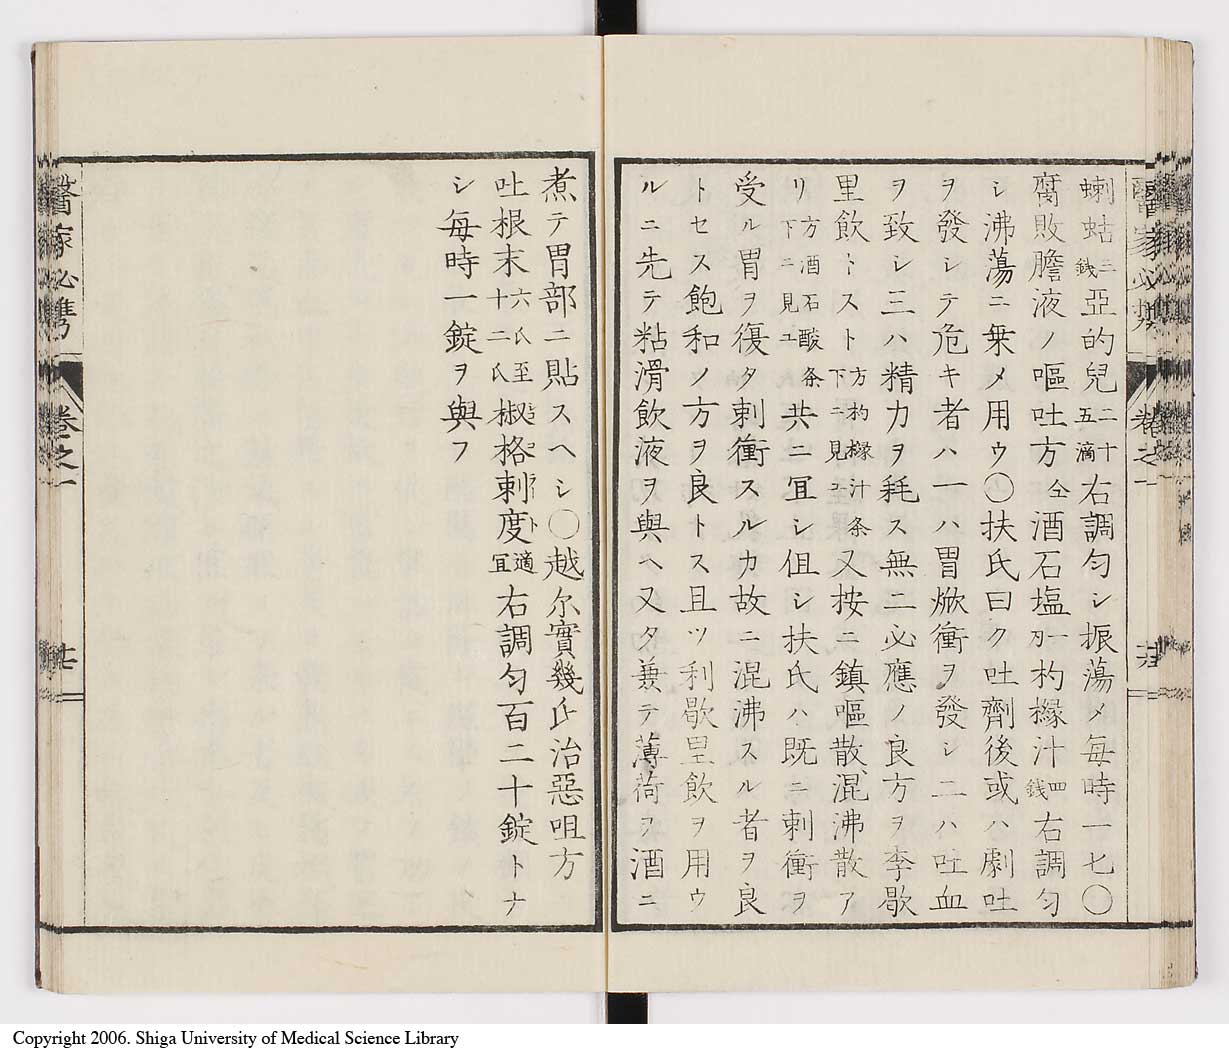 蝲蛄二錢亞的兒二十五滴右調勻シ振蕩メ毎時一匕〇
腐敗膽液ノ嘔吐方仝酒石塩一𠛎枸櫞汁四錢右調勻
シ沸蕩ニ乗メ用ウ〇扶氏曰ク吐劑後或ハ劇吐
ヲ發シテ危キ者ハ一ハ胃焮衝ヲ發シ二ハ吐血
ヲ致シ三ハ精力ヲ耗ス無二必應ノ良方ヲ李歇
里飲トスト方枸櫞汁条下ニ見ユ又按ニ鎮嘔散混沸散ア
リ方酒石酸条下ニ見ユ共ニ冝シ伹シ扶氏ハ既ニ刺衝ヲ
受ル胃ヲ復タ刺衝スルカ故ニ混沸スル者ヲ良
トセス飽和ノ方ヲ良トス且ツ利歇里飲ヲ用ウ
ルニ先テ粘滑飲液ヲ與ヘ又タ兼テ薄荷ヲ酒ニ
煮テ胃部ニ貼スヘシ〇越尓實幾氏治惡咀方
吐根末六氏至十二氏椒格剌度適冝右調勻百二十錠トナ
シ毎時一錠ヲ與フ
醫家必携
卷之一
廿
Copyright 2006. Shiga University of Medical Science Library